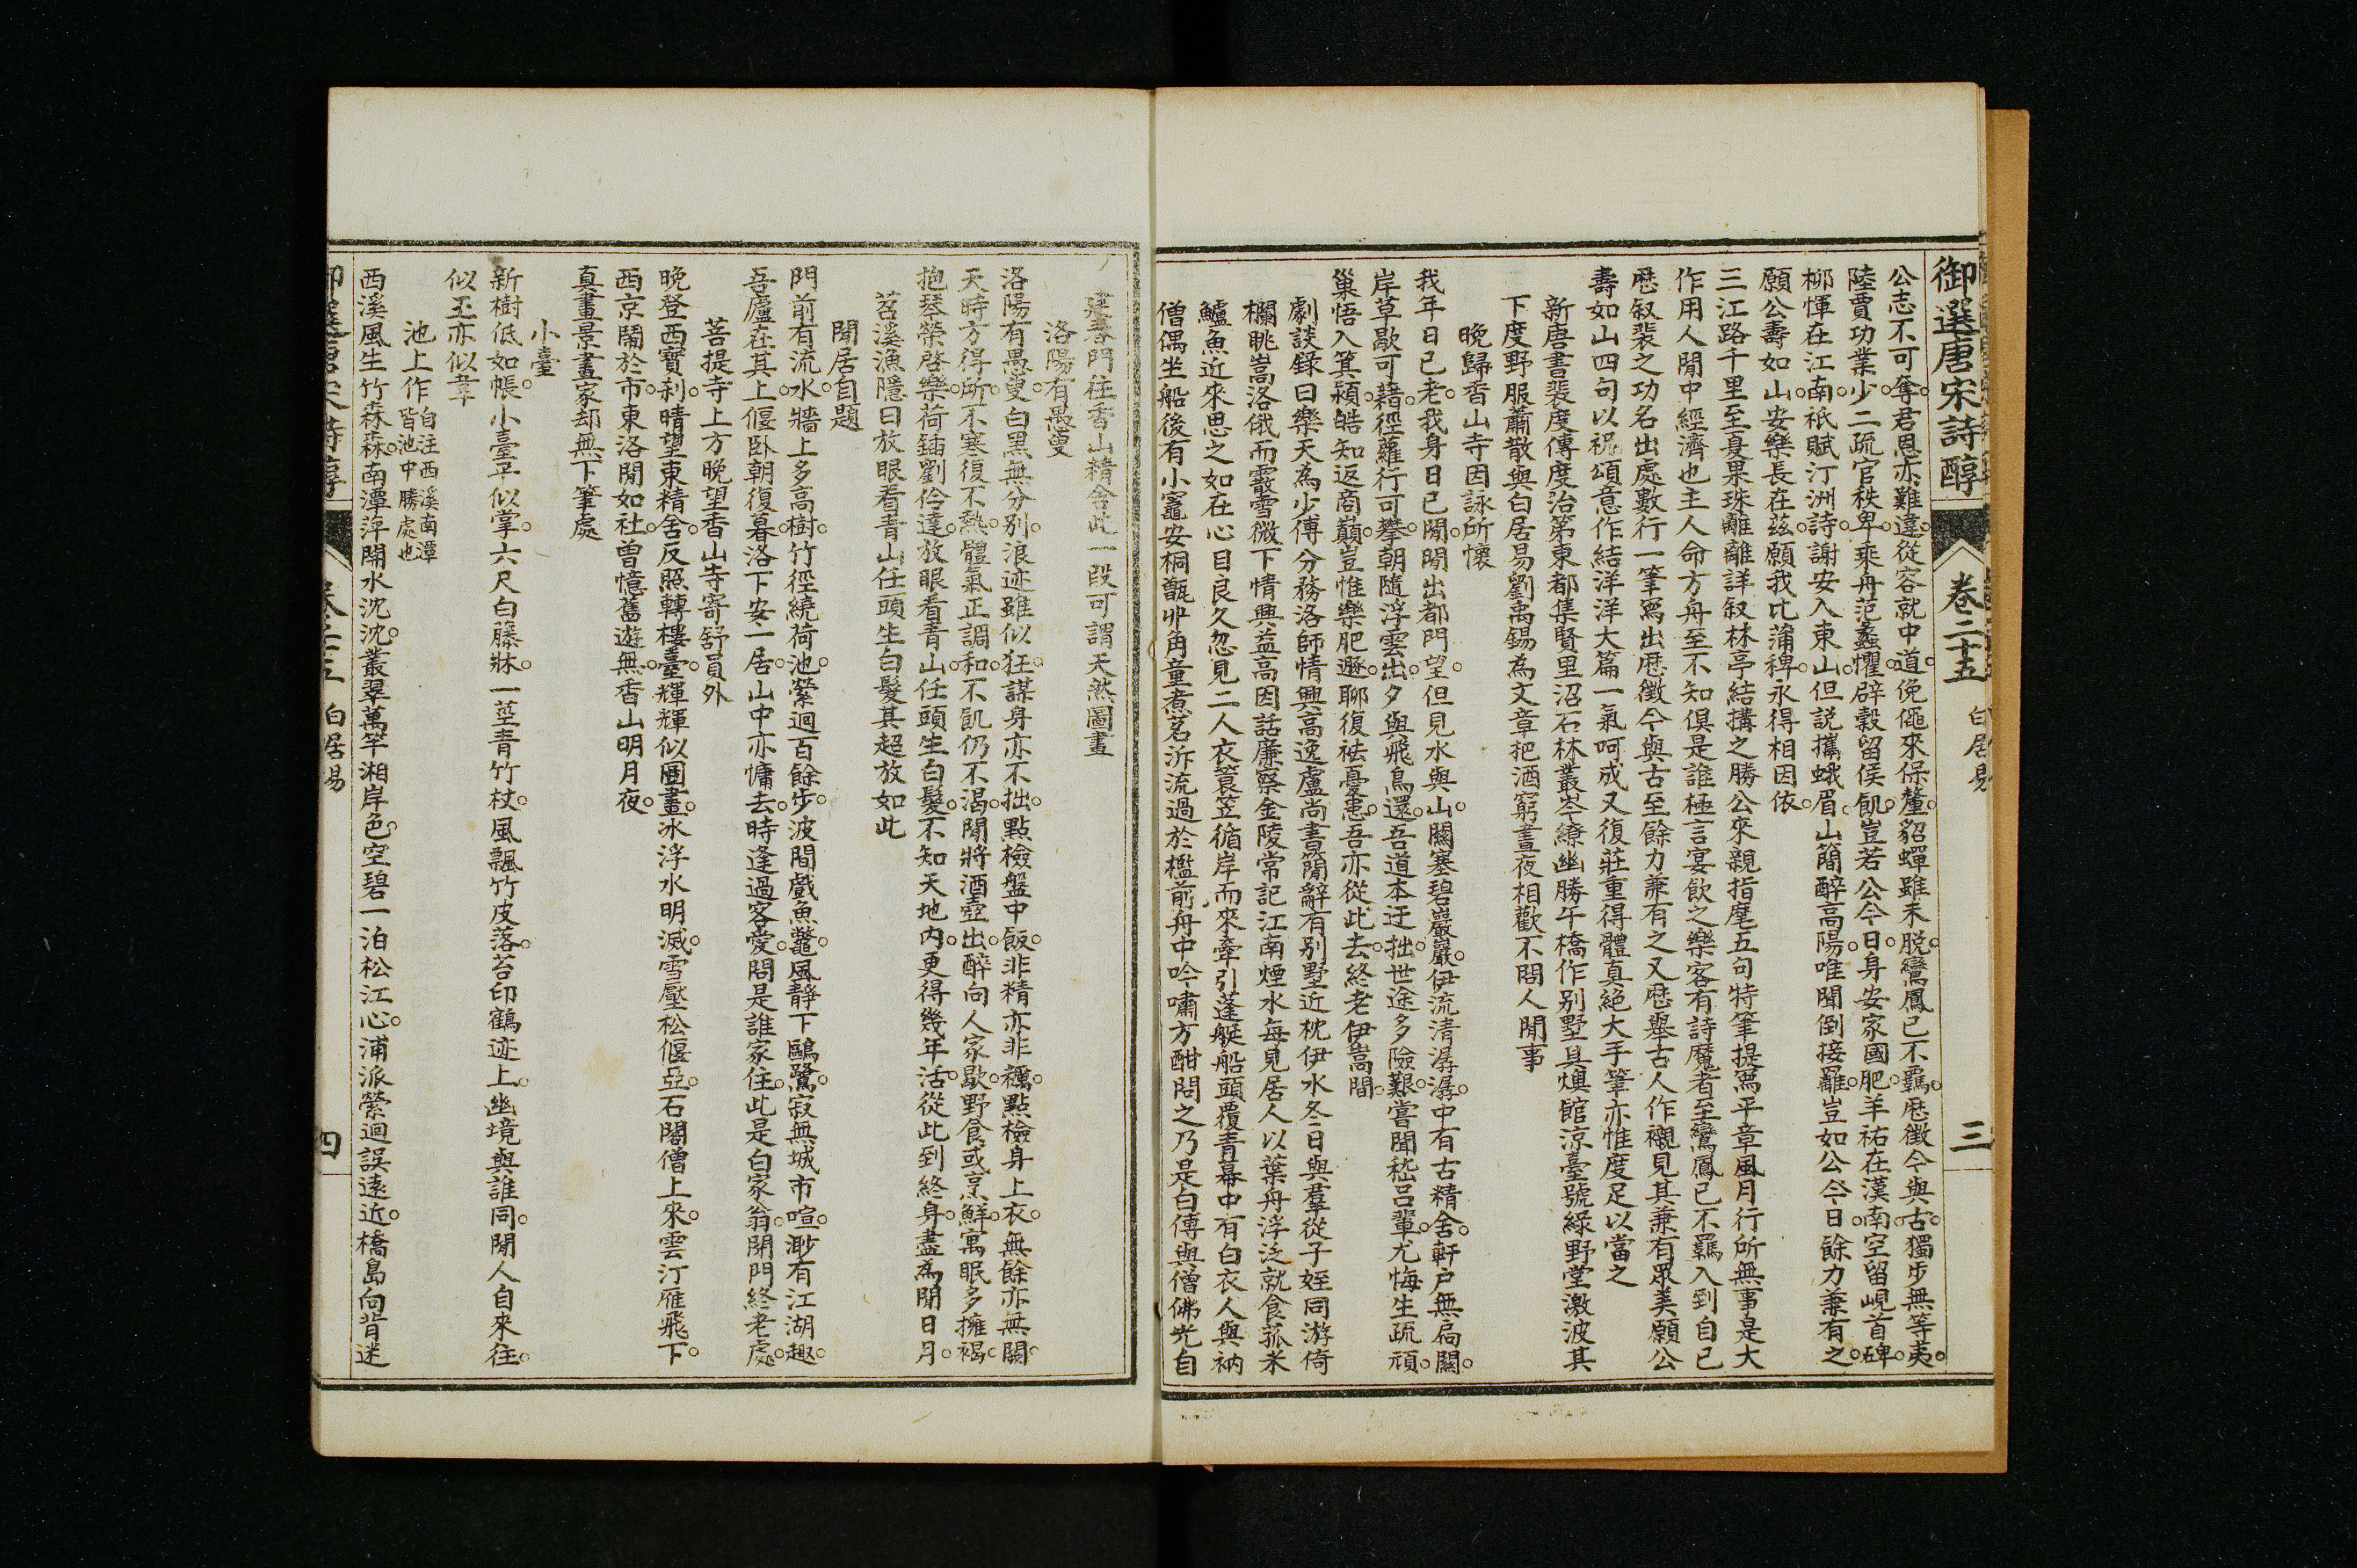 御選唐宋詩醇
卷二十五
白居易
三
公志不可奪君恩亦難違從容就中道俛僶來保釐貂蟬雖未脫鸞鳳已不羈歷徵今與古獨步無等夷
陸賈功業少二疏官秩卑乘舟范蠡懼辟穀留侯飢豈若公今日身安家國肥羊祐在漢南空留峴首碑
栁惲在江南祇賦汀洲詩謝安入東山但說攜蛾眉山簡醉高陽唯聞倒接䍦豈如公今日餘力兼有之
願公壽如山安樂長在茲願我比蒲稗永得相因依
三江路千里至夏果珠離離詳敘林亭結搆之勝公來親指麾五句特筆提寫平章風月行所無事是大
作用人閒中經濟也主人命方舟至不知俱是誰極言宴飲之樂客有詩魔者至鸞鳳已不羈入到自己
歷叙裴之功名出處數行一筆寫出歷徵今與古至餘力兼有之又歷舉古人作襯見其兼有眾美願公
壽如山四句以祝頌意作結洋洋大篇一氣呵成又復莊重得體真絕大手筆亦惟度足以當之
新唐書裴度傳度治第東都集賢里沼石林叢岑繚幽勝午橋作别墅具燠館涼臺號綠野堂激波其
下度野服蕭散與白居易劉禹錫為文章把酒窮晝夜相歡不問人閒事
晚歸香山寺因詠所懷
我年日已老我身日已閒閒出都門望但見水與山關塞碧巖巖伊流清潺潺中有古精舍軒户無扃關
岸草歇可藉徑蘿行可攀朝隨浮雲出夕與飛鳥還吾道本迂拙世途多險艱嘗聞嵇呂輩尤悔生疏頑
巢悟入箕潁皓知返商巔豈惟樂肥遯聊復祛憂患吾亦從此去終老伊嵩間
劇談錄曰樂天為少傅分務洛師情興高逸盧尚書簡辭有别墅近枕伊水冬日與羣從子姪同游倚
欄眺嵩洛俄而霰雪微下情興益高因話廉察金陵常記江南煙水每見居人以葉舟浮泛就食菰米
鱸魚近來思之如在心目良久忽見二人衣蓑笠循岸而來牽引蓬艇船頭覆青幕中有白衣人與衲
僧偶坐船後有小竈安桐甑丱角童煮茗泝流過於檻前舟中吟嘯方酣問之乃是白傅與僧佛光自
建春門往香山精舍此一段可謂天然圖畫
洛陽有愚叟
洛陽有愚叟白黑無分别浪迹雖似狂謀身亦不拙點檢盤中飯非精亦非糲點檢身上衣無餘亦無闕
天時方得所不寒復不熱體氣正調和不飢仍不渴閒將酒壺出醉向人家歇野食或烹鮮寓眠多擁褐
抱琴榮啓樂荷鍤劉伶達放眼看青山任頭生白髮不知天地內更得幾年活從此到終身盡為閒日月
苕溪漁隱曰放眼看青山任頭生白髮其超放如此
閒居自題
門前有流水牆上多高樹竹徑繞荷池縈迴百餘步波間戲魚鼈風靜下鷗鷺寂無城市喧渺有江湖趣
吾廬在其上偃卧朝復暮洛下安一居山中亦慵去時逢過客愛問是誰家住此是白家翁閉門終老處
菩提寺上方晚望香山寺寄舒員外
晚登西寶刹晴望東精舍反照轉樓臺輝輝似圖畫冰浮水明滅雪壓松偃亞石閣僧上來雲汀雁飛下
西京鬧於市東洛閒如社曾憶舊遊無香山明月夜
真畫景畫家却無下筆處
小臺
新樹低如帳小臺平似掌六尺白藤牀一莖青竹杖風飄竹皮落苔印鶴迹上幽境與誰同閒人自來往
似王亦似韋
池上作自注西溪南潭皆池中勝處也
西溪風生竹森森南潭萍開水沈沈叢翠萬竿湘岸色空碧一泊松江心浦派縈迴誤遠近橋島向背迷
白居易
四